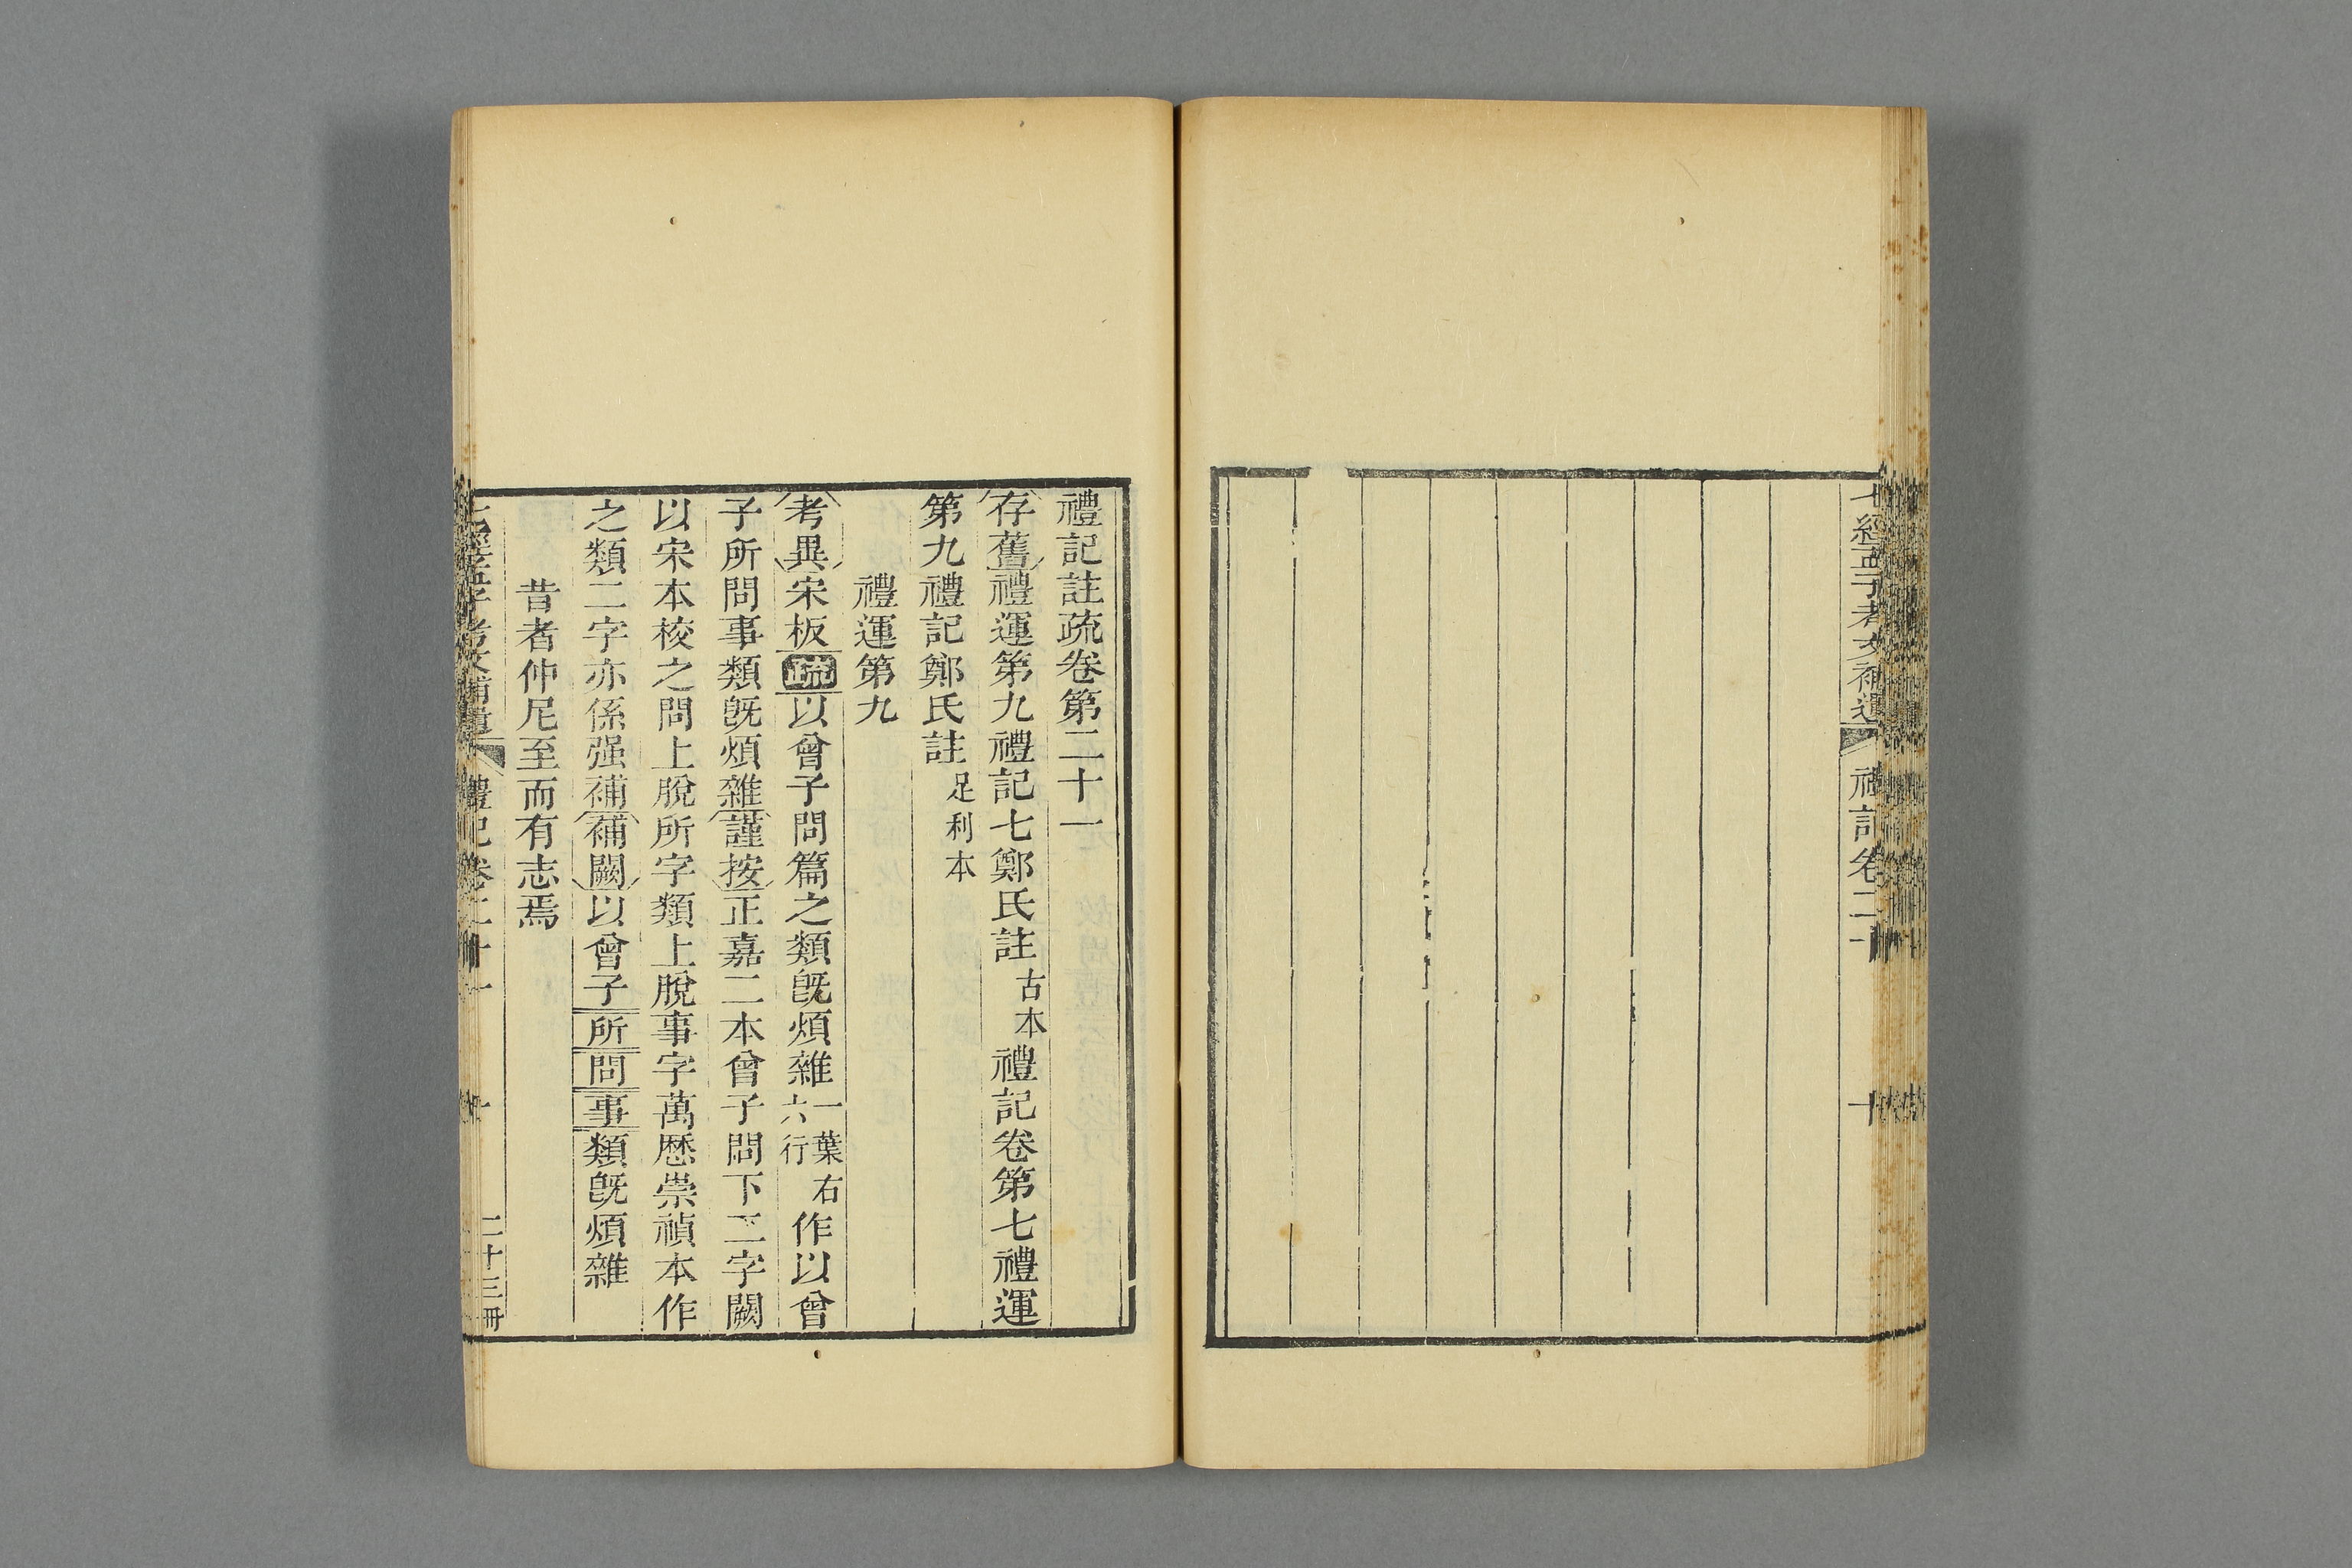 七經孟子考文補遺 禮記卷二十 十
禮記註疏卷第二十一
存舊禮運第九禮記七鄭氏註古本禮記卷第七禮運
第九禮記鄭氏註足利本
禮運第九
考異宋板疏以曾子問篇之類旣煩雜一葉右六行作以曾
子所問事類旣煩雜謹按正嘉二本曾子問下二字闕
以宋本校之問上脫所字類上脫事字萬歷崇禎本作
之類二字亦係强補補闕以曾子所問事類旣煩雜
昔者仲尼至而有志焉
七經孟子考文補遺 禮記卷二十一 一 二十三冊